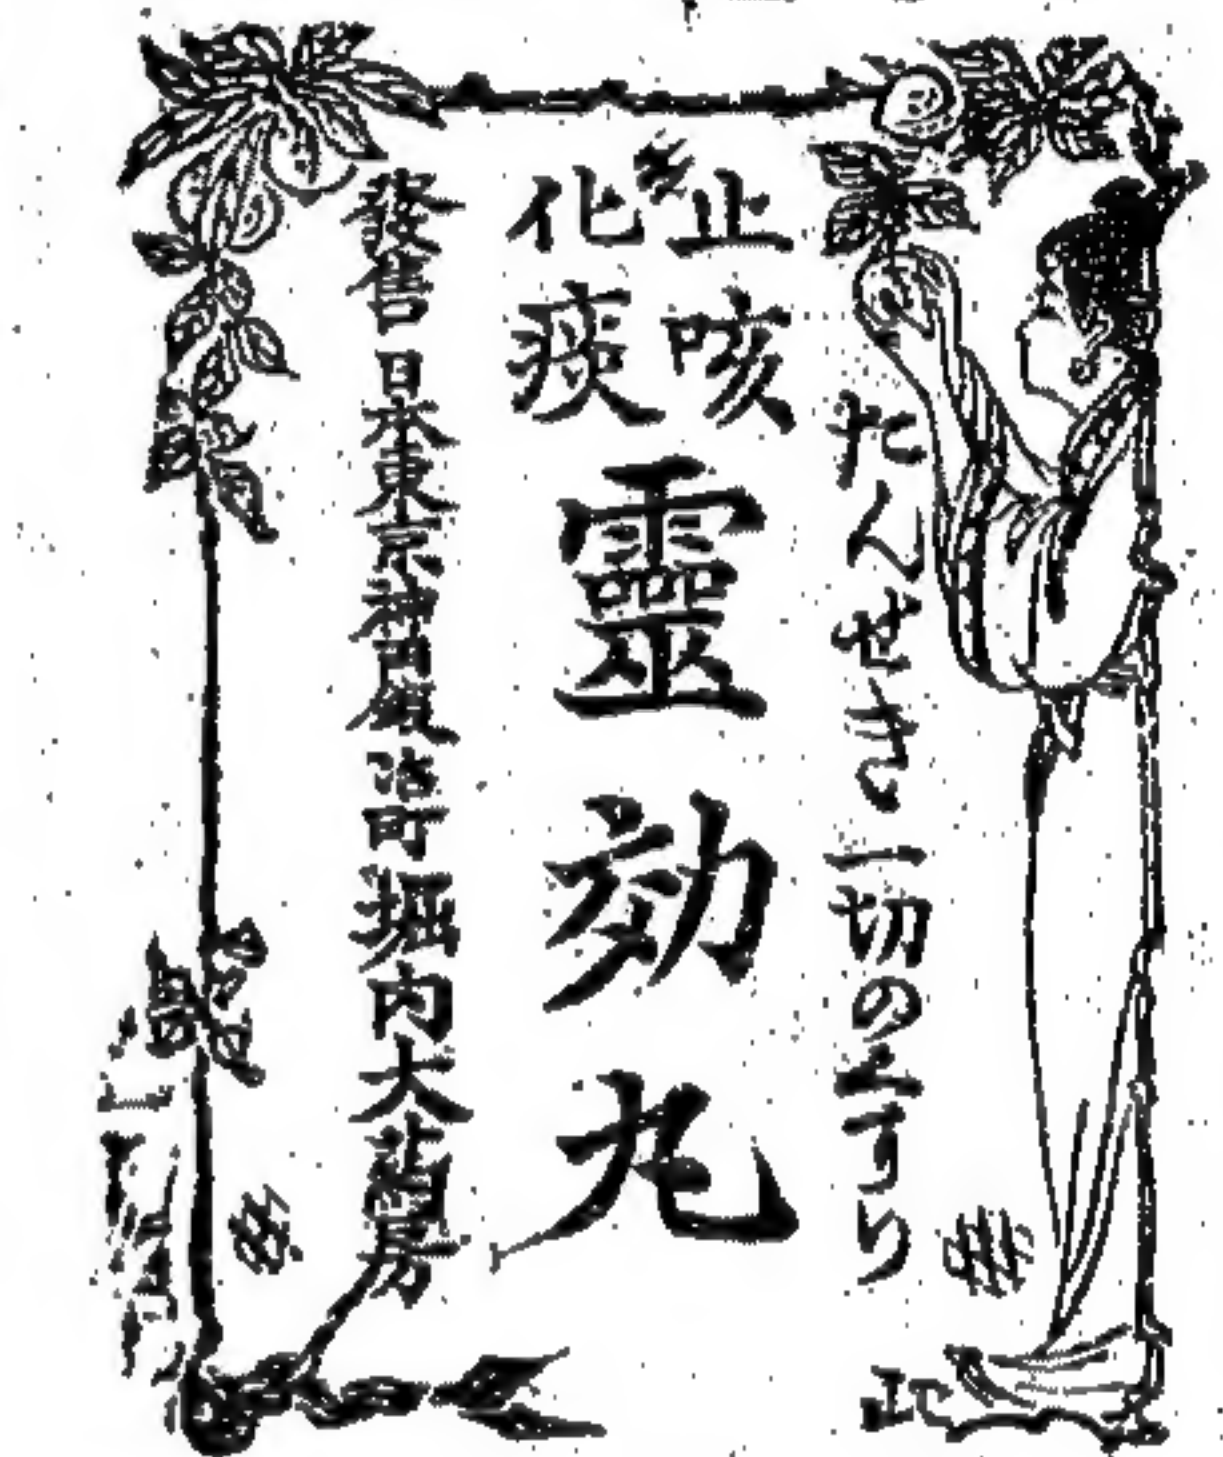 たんせき一切のくすり
止咳
化痰
靈効丸
發售 日本東京神田鍛冶町 堀内大葯房